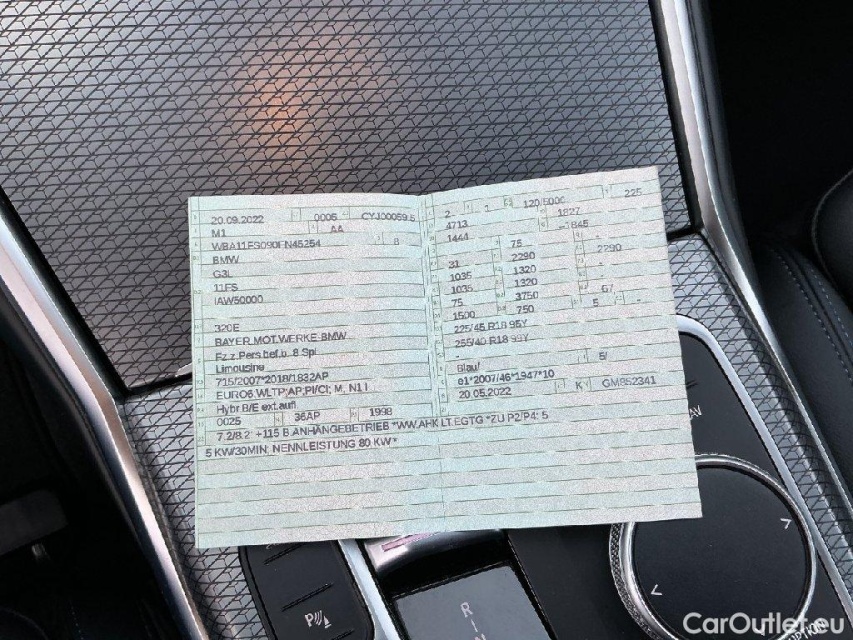 20.09.2022 0006 CYJ00069 5
M1 AA
WBA11FS090FN45254 8
BMW
G3L
11FS
IAW50000
320E
BAYER.MOT.WERKE-BMW
Fz.z.Pers.bef.b. 8 Spl
Limousine
715/2007*2018/1832AP
EURO6 WLTP;AP;PI/CI; M, N1 I
Hybr.B/E ext.aufl
0025 36AP 1998
2 1 120/5000 225
4713 1827
1444 -1845
31 75
1035 2290 2290
1035 1320
75 1320
1500 3750 67
225/45 R18 95Y 750 5 -
255/40 R18 99Y
-
Blau/ 6/
e1*2007/46*1947*10
20.05.2022 K GM852341
7.2/8.2: +115 B.ANHÄNGEBETRIEB *WW.AHK LT.EGTG *ZU P2/P4: 5
5 KW/30MIN; NENNLEISTUNG 80 KW*
P
R
N
CarOutlet.eu